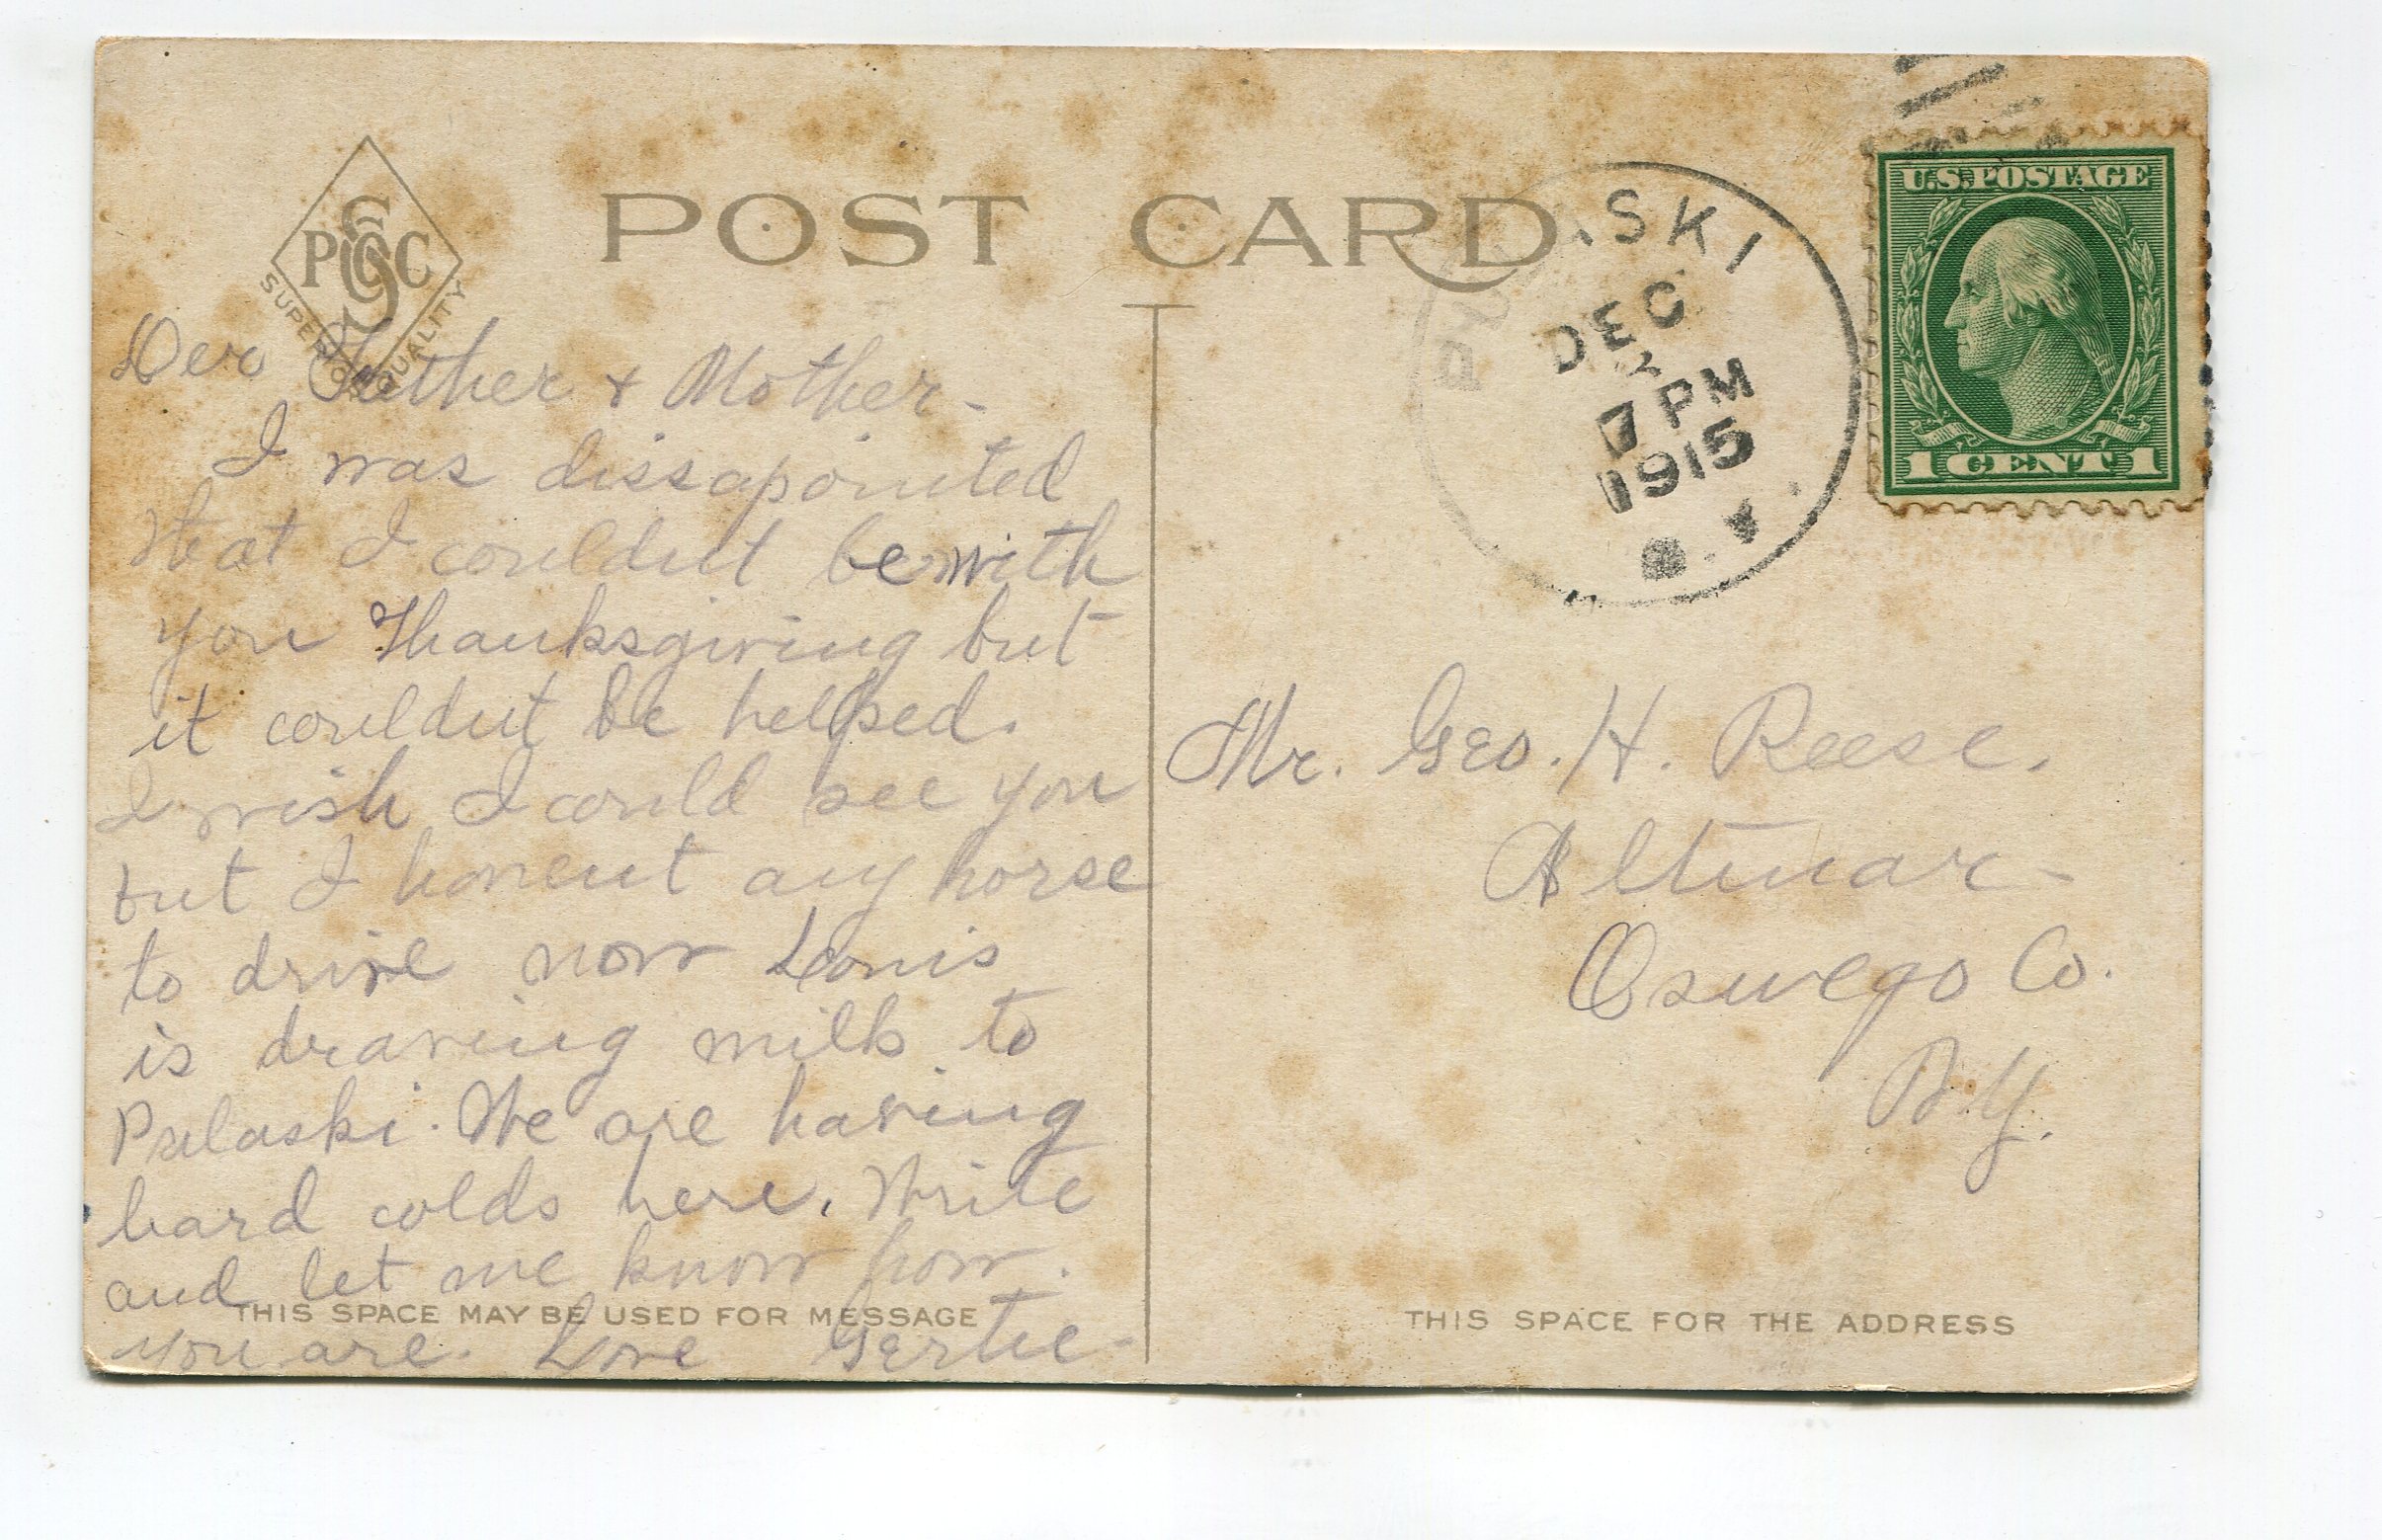 POST CARD
PGC
SUPERIOR QUALITY
Der Father + Mother-
I was dissapointed
that I couldnt be with
you Thanksgiving but
it couldnt be helped.
I wish I could see you
but I havent any horse
to drive now Louis
is drawing milk to
Pulaski. We are having
hard colds here. Write
and let me know how
you are. Love Gertie-
THIS SPACE MAY BE USED FOR MESSAGE
PULASKI
DEC
2
7 PM
1915
N.Y.
U.S. POSTAGE
1 CENT 1
Mr. Geo. H. Reese.
Altmar-
Oswego Co.
N.Y.
THIS SPACE FOR THE ADDRESS